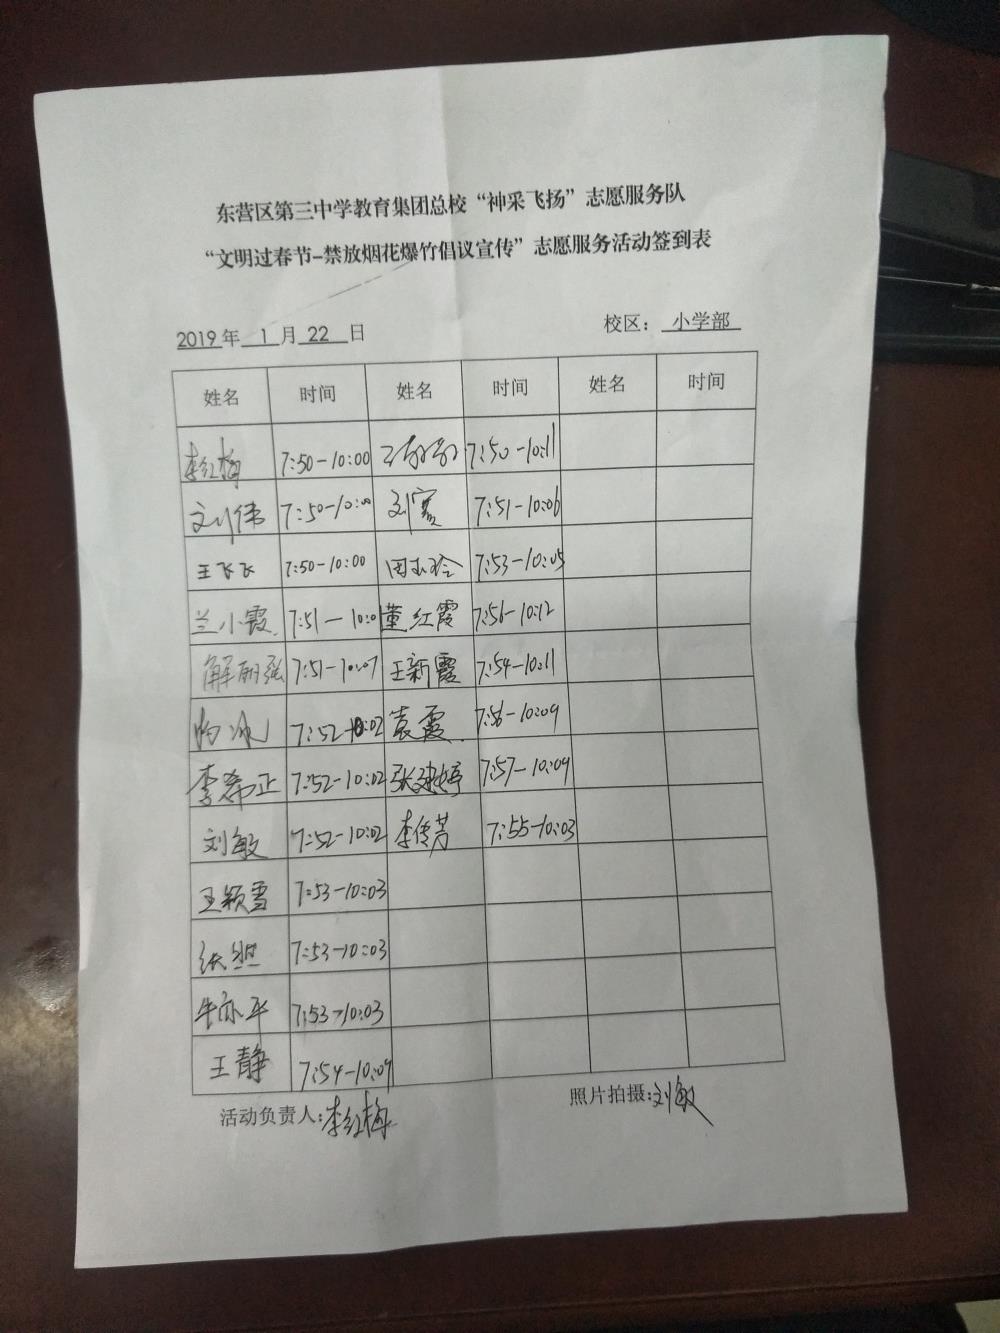 东营区第三中学教育集团总校“神采飞扬”志愿服务队
“文明过春节-禁放烟花爆竹倡议宣传”志愿服务活动签到表
2019年 1 月 22 日 校区： 小学部
姓名 时间 姓名 时间 姓名 时间
李红梅 7:50-10:00 7:50-10:11
刘伟 7:50-10:00 刘霞 7:51-10:06
王飞飞 7:50-10:00 田玉玲 7:53-10:05
兰小霞 7:51-10:0 董红霞 7:56-10:12
解丽强 7:51-10:07 王新霞 7:54-10:11
7:52-10:02 袁霞 7:56-10:09
李希正 7:52-10:02 张建婷 7:57-10:09
刘敏 7:52-10:02 李传芳 7:55-10:03
王颖雪 7:53-10:03
张 7:53-10:03
牛亦平 7:53-10:03
王静 7:54-10:09
活动负责人:李红梅 照片拍摄:刘敏